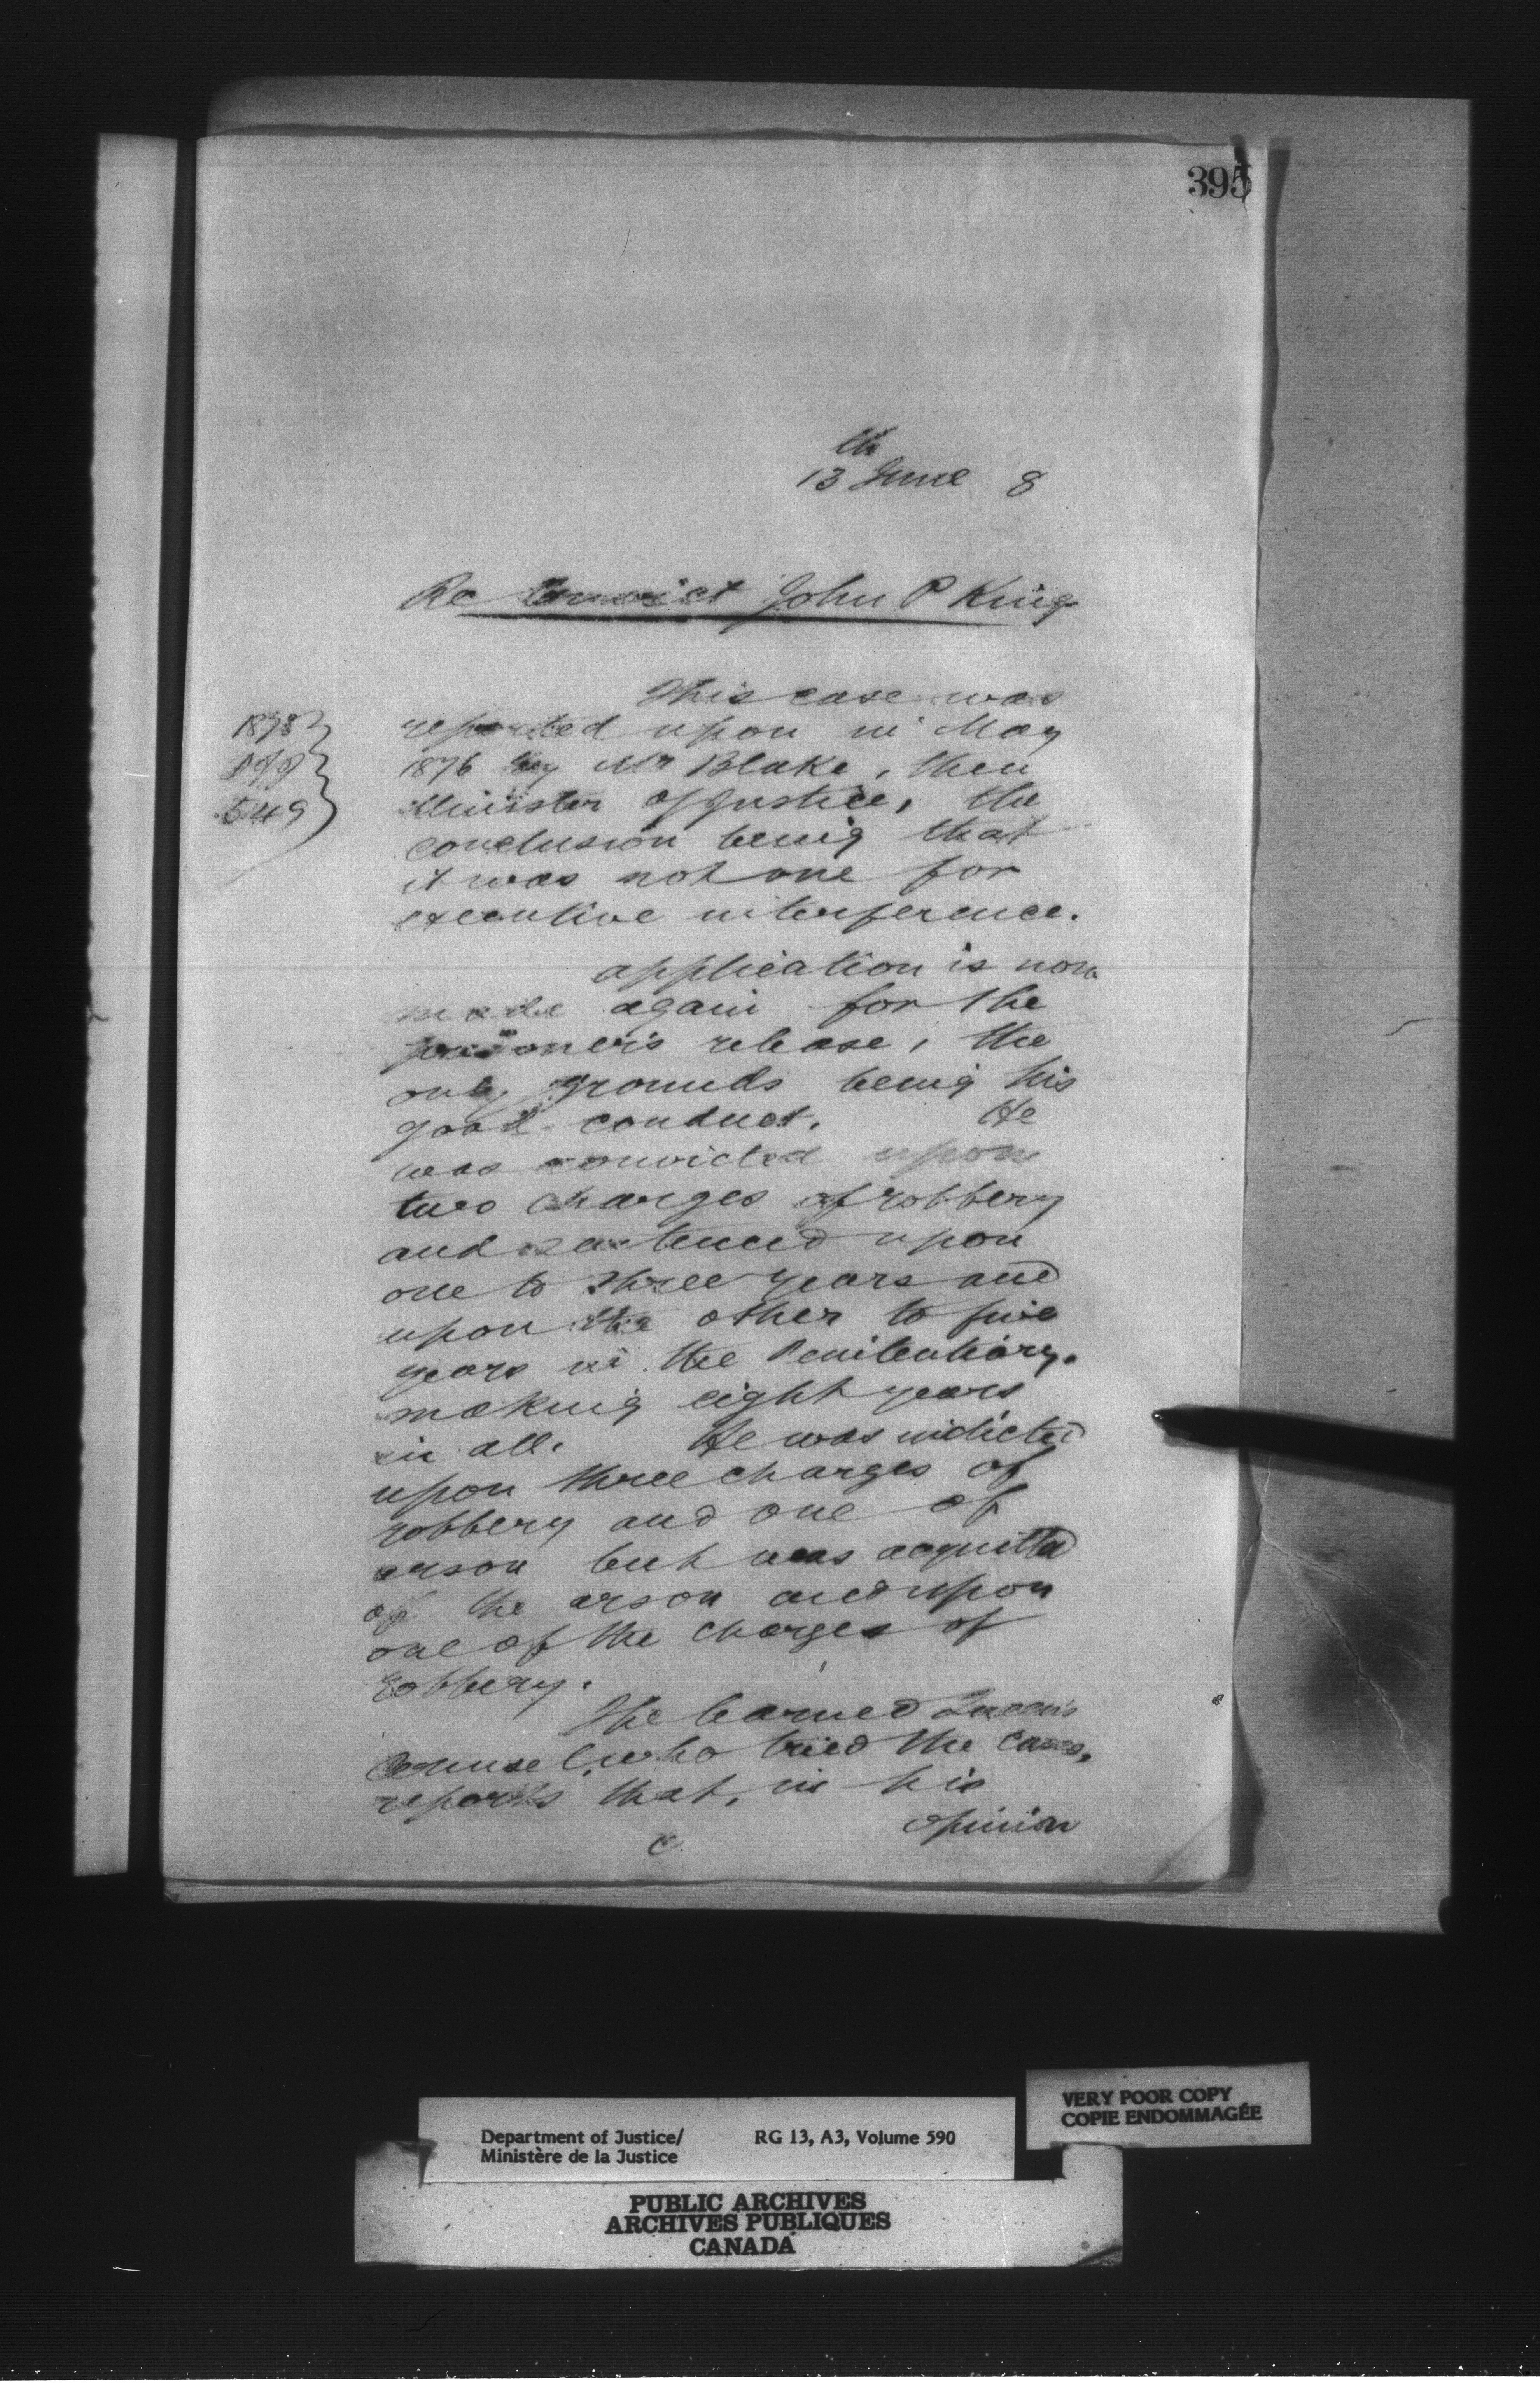 395
13th June 8
Re Convict John P King
This case was
1878
reported upon in May
1876 by Mr Blake, then
549
Minister of Justice, the
conclusion being that
it was not one for
executive interference.
application is now
made again for the
prisoner's release, the
only grounds being his
good conduct. He
was convicted upon
two charges of robbery
and sentenced upon
one to three years and
upon the other to five
years in the Penitentiary.
making eight years
in all. He was indicted
upon three charges of
robbery and one of
arson but was acquitted
of the arson and upon
one of the charges of
robbery.
The learned Queen's
Counsel, who tried the cases,
reports that, in his
opinion
Department of Justice/ RG 13, A3, Volume 590
Ministère de la Justice
VERY POOR COPY
COPIE ENDOMMAGÉE
PUBLIC ARCHIVES
ARCHIVES PUBLIQUES
CANADA